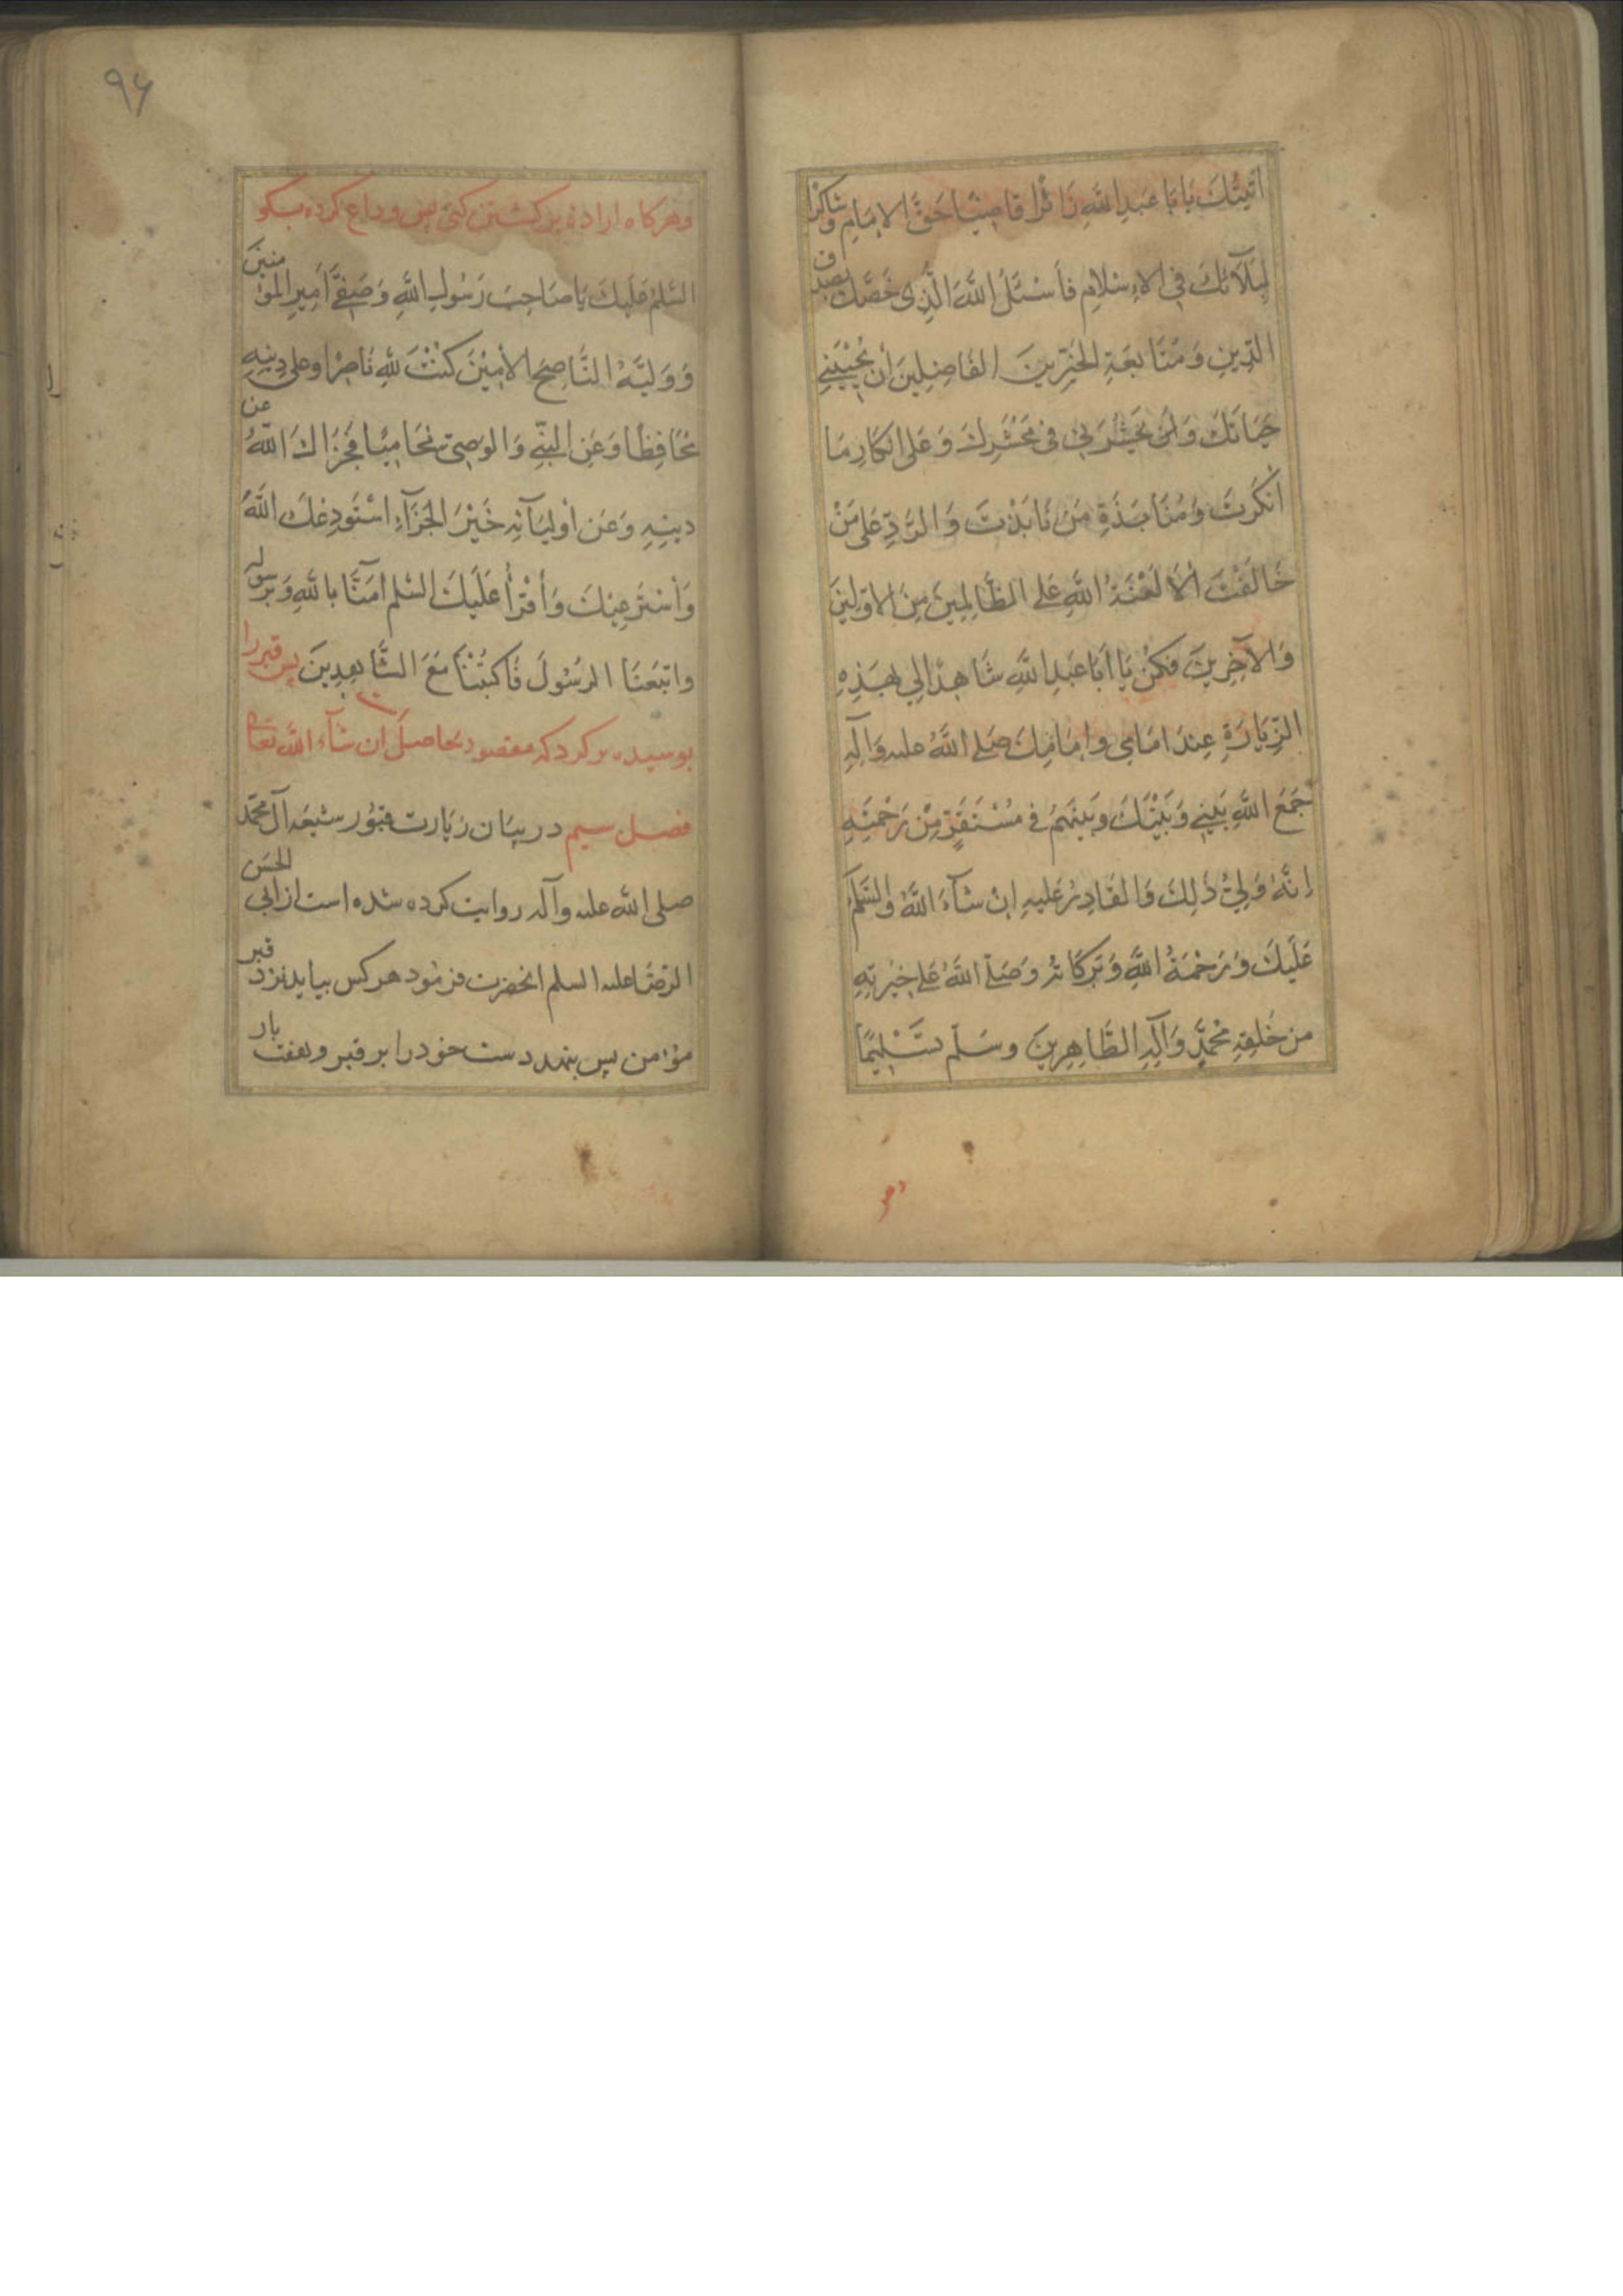 اَتَیْتُكَ یَا بَا عَبْدِ اللَّهِ زَائِرًا قَاضِیًا حَقَّ الْاِمَامِ وَ شَاکِرًا
لِبَلَآئِكَ فِی الْاِسْلَامِ فَاَسْئَلُ اللَّهَ الَّذِی خَصَّكَ بِصِدْقِ
الدِّینِ وَ مُتَابَعَةِ الْخَیِّرِینَ الْفَاضِلِینَ اَنْ یُحْیِیَنِی
حَیَاتَكَ وَ اَنْ یَحْشُرَنِی فِی مَحْشَرِكَ وَ عَلَی اِنْکَارِ مَا
اَنْکَرْتَ وَ مُنَابَذَةِ مَنْ نَابَذْتَ وَ الرَّدِّ عَلَی مَنْ
خَالَفْتَ اَلَا لَعْنَةُ اللَّهِ عَلَی الظَّالِمِینَ مِنَ الْاَوَّلِینَ
وَ الْآخِرِینَ فَکُنْ یَا اَبَا عَبْدِ اللَّهِ شَاهِدًا لِی بِهَذِهِ
الزِّیَارَةِ عِنْدَ اِمَامِی وَ اِمَامِكَ صَلَّی اللَّهُ علیه وَ آلِهِ
جَمَعَ اللَّهُ بَیْنِی وَ بَیْنَكَ وَ بَیْنَهُمْ فِی مُسْتَقَرٍّ مِنْ رَحْمَتِهِ
اِنَّهُ وَلِیُّ ذَلِكَ وَ الْقَادِرُ عَلَیْهِ اِنْ شَآءَ اللَّهُ وَ السَّلَمُ
عَلَیْكَ وَ رَحْمَةُ اللَّهِ وَ بَرَکَاتُهُ وَ صَلَّی اللَّهُ عَلَی خِیَرَتِهِ
مِنْ خَلْقِهِ مُحَمَّدٍ وَ آلِهِ الطَّاهِرِینَ وَ سَلَّمَ تَسْلِیمًا
وهر
۹۶
وهرکاه اراده برکشتن کنی پس وداع کرده بکو
السَّلمُ عَلَیْكَ یَا صَاحِبَ رَسُولِ اللَّهِ وَ صَفِیَّ اَمِیرِ الْمؤمنینَ
وَ وَلِیَّهُ النَّاصِحَ الْاَمِیْنَ کُنْتَ لِلَّهِ نَاصِرًا وعلی دِینِهِ
مُحَافِظًا وَ عَنِ النَّبِیِّ وَ الوَصِیِّ مُحَامِیًا فَجَزَاكَ اللَّهُ عن
دِینِهِ وَ عَنْ اَوْلِیَآئِهِ خَیْرَ الْجَزَآءِ اَسْتَوْدِعُكَ اللَّهَ
وَ اَسْتَرْعِیْكَ وَ اَقْرَأُ عَلَیْكَ السَّلم آمَنَّا بِاللَّهِ وَ بِرَسُولِهِ
وَ اتَّبَعْنَا الرَّسُولَ فَاکْتُبْنَا مَعَ الشَّاهِدِینَ پس قبر را
بوسیده برکرد که مقصود بحاصل ان شآء اللّه تعالی
فصل سیم در بیان زیارت قبور شیعه آل محمّد
صلی الله علیه وآله روایت کرده شده است از ابی الحسن
الرّضا علیه السلم انحضرت فرمود هر کس بیاید نزد قبر
مؤمن پس بنهد دست خود را بر قبر و هفت بار